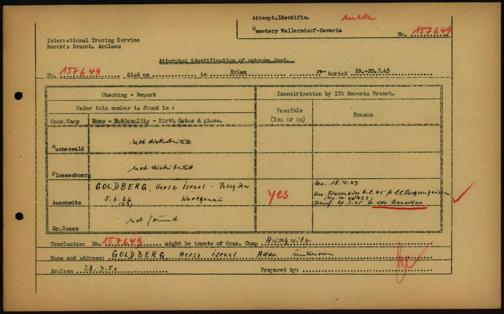 Attempt.Identific. made
Cemetery Wallersdorf-Bavaria
No. 157649
International Tracing Service
Records Branch, Arolsen
Attempted identification of unknown dead.
No. 157649 died on in re- buried 19.-20.7.45
Checking - Report
Identification by ITS Records Branch.
Under this number is found in :
Possible
(Yes or no)
Reason
Conc.Camp Name - Nationality - Birth date & place.
Buchenwald not distributed
Flossenbuerg not distributed
Auschwitz GOLDBERG, Hersz Israel -
5.6.26
yes
Arr. 18.10.43
Gr.Rosen - not found
Conclusion: No. 157649 might be inmate of Conc. Camp Auschwitz
Name and address: GOLDBERG Hersz Israel Addr. unknown
Arolsen 28.3.50 Prepared by: